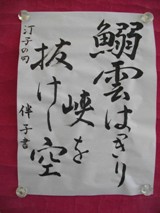 鰯雲はっきり
峡を
抜けし空
汀子の句
伴子書